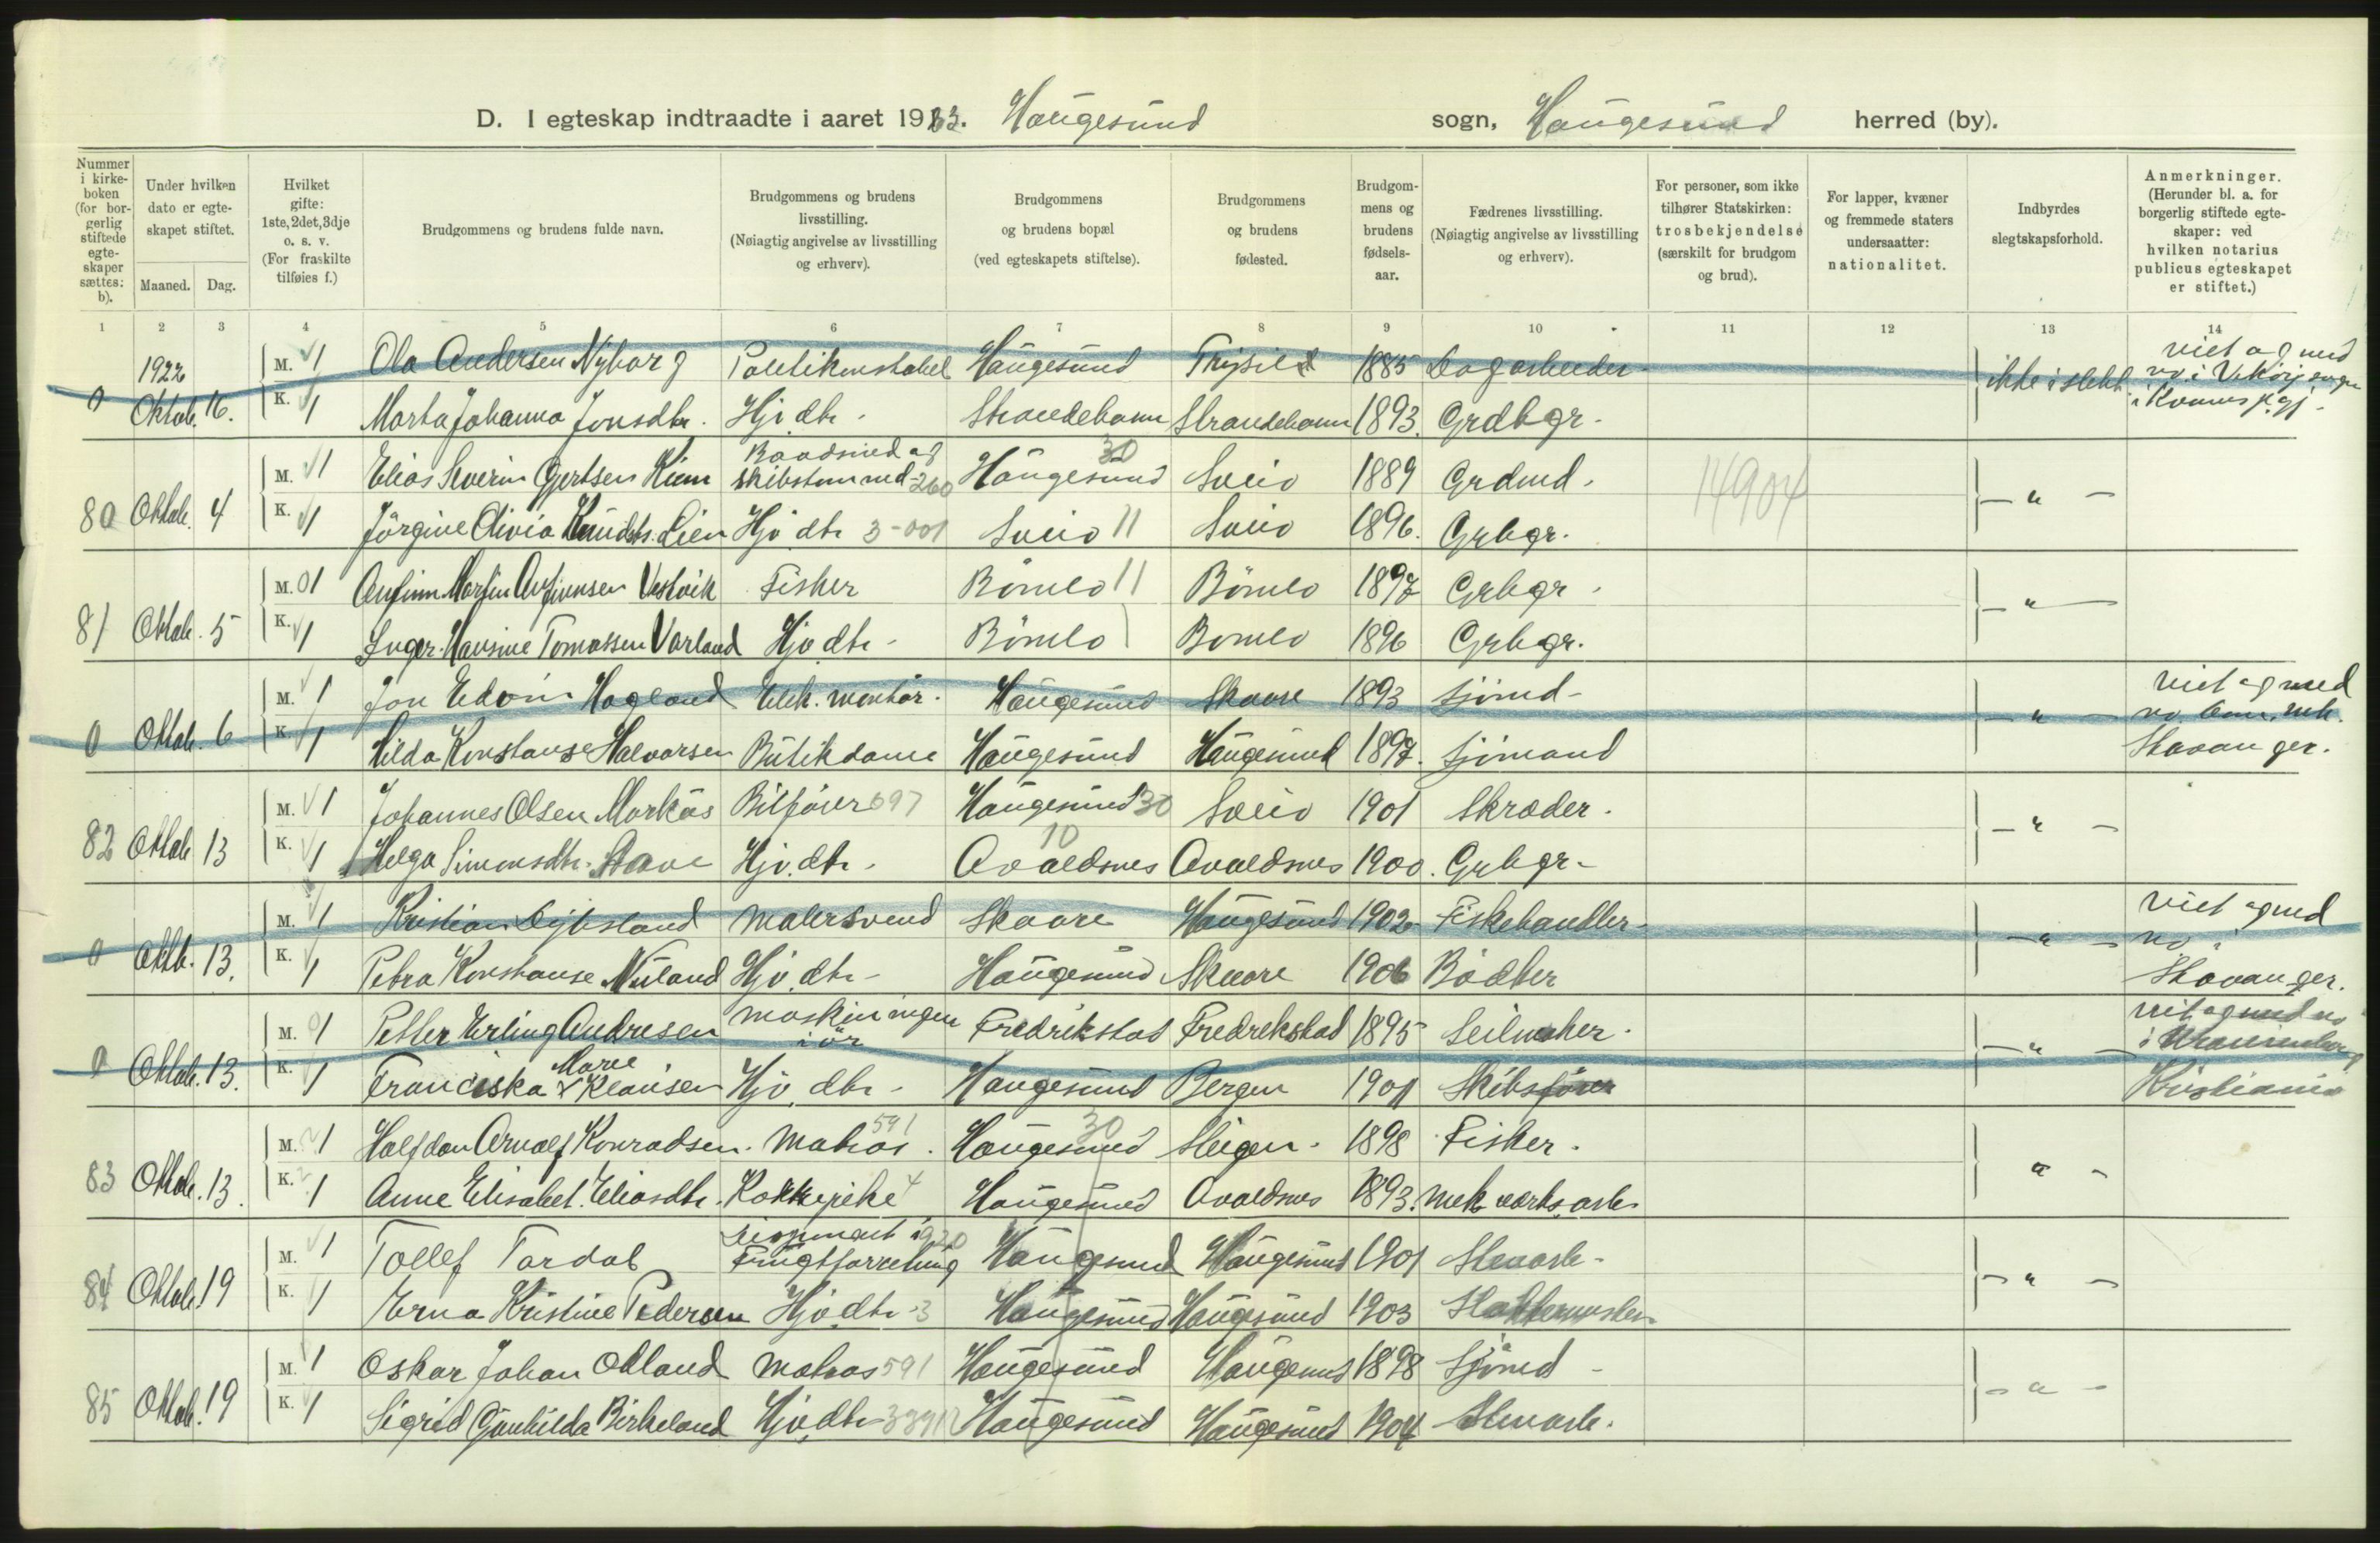 D. I egteskap indtraadte i aaret 1923. Haugesund sogn, Haugesund herred (by).
Nummer i kirkeboken (for borgerlig stiftede egteskaper sættes: b).
Under hvilken dato er egteskapet stiftet.
Maaned. Dag.
Hvilket gifte: 1ste, 2det, 3dje o. s. v. (For fraskilte tilføies f.)
Brudgommens og brudens fulde navn.
Brudgommens og brudens livsstilling. (Nøiagtig angivelse av livsstilling og erhverv).
Brudgommens og brudens bopæl (ved egteskapets stiftelse).
Brudgommens og brudens fødested.
Brudgommens og brudens fødselsaar.
Fædrenes livsstilling. (Nøiagtig angivelse av livsstilling og erhverv).
For personer, som ikke tilhører Statskirken: trosbekjendelse (særskilt for brudgom og brud).
For lapper, kvæner og fremmede staters undersaatter: nationalitet.
Indbyrdes slegtskapsforhold.
Anmerkninger. (Herunder bl. a. for borgerlig stiftede egteskaper: ved hvilken notarius publicus egteskapet er stiftet.)
1 2 3 4 5 6 7 8 9 10 11 12 13 14
1922 M. 1 Ola Andersen Nyborg Politikonstabel Haugesund Trysil 1885 Dagarbeider ikke i slekt viet og med
0 Oktob. 16. K. 1 Marta Johanna Jonsdtr. Hjv. dtr. Strandebarm Strandebarm 1893. Grdbgr.
M. 1 Elias Severin Gjertsen Kium skibstømmed 260 Haugesund 30 Sveio 1889 Grdmd.
80 Oktob. 4 K. 1 Jörgine Olivia Knudtr. Lien Hjv dtr 3-001 Sveio 11 Sveio 1896. Grbgr. 14904 - " -
M. 01 Anfinn Martin Anfinnsen Vestvik Fisker Bömlo 11 Bömlo 1897 Grbgr.
81 Oktob. 5 K. 1 Inger Hansine Tomassen Vorland Hjv dtr - Bömlo Bömlo 1896 Grbgr. - " -
M. 1 Jon Edvin Hagland Elek. montör. Haugesund Skaare 1893 Sjömd - viet og med
0 Oktob. 6 K. 1 Hilda Konstanse Halvorsen Butikdame Haugesund Haugesund 1897. Sjömand - " - Stavanger.
M. 1 Johannes Olsen Markås Bilförer 697 Haugesund 30 Sveio 1901 Skræder.
82 Oktob. 13 K. 1 Helga Simonsdtr. Stave Hjv. dtr. 10 Avaldsnes Avaldsnes 1900. Grbgr. - " -
M. 1 Kristian Malersvend Skaare Haugesund 1902 Fiskehandler viet og med
0 Oktb. 13. K. 1 Petra Konstanse Nuland Hjv. dtr - Haugesund Skaare 1906 Bödker - " - no i Stavanger.
M. 01 Petter Erling Andresen maskiningeniör Fredrikstad Fredrekstad 1895 Seilmaker. viet og med no
0 Oktob. 13. K. 1 Franciska Marie Klausen Hjv. dtr - Haugesund Bergen 1901 Skibsförer - " - i Uranienborg Kristiania
M. 1 Halfdan Arnolf Konradsen. Matros 591. Haugesund 30 Steigen. 1898 Fisker.
83 Oktob. 13. K. 1 Anne Elisabet Eliasdtr. Kokkepike 4 Haugesund Avaldsnes 1893. mek. verks. arb. " -
M. 1 Tollef Tordal Frugtforretning 920 Haugesund Haugesund 1901 Stenarb -
84 Oktob. 19 K. 1 Erna Kristine Pedersen Hjv. dtr - 3 Haugesund Haugesund 1903 - " -
M. 1 Oskar Johan Økland Matros 591 Haugesund Haugesund 1898 Sjömd -
85 Oktob. 19 K. 1 Sigrid Gunhilda Birkeland Hjv. dtr Haugesund Haugesund 1904 Stenarb. - " -